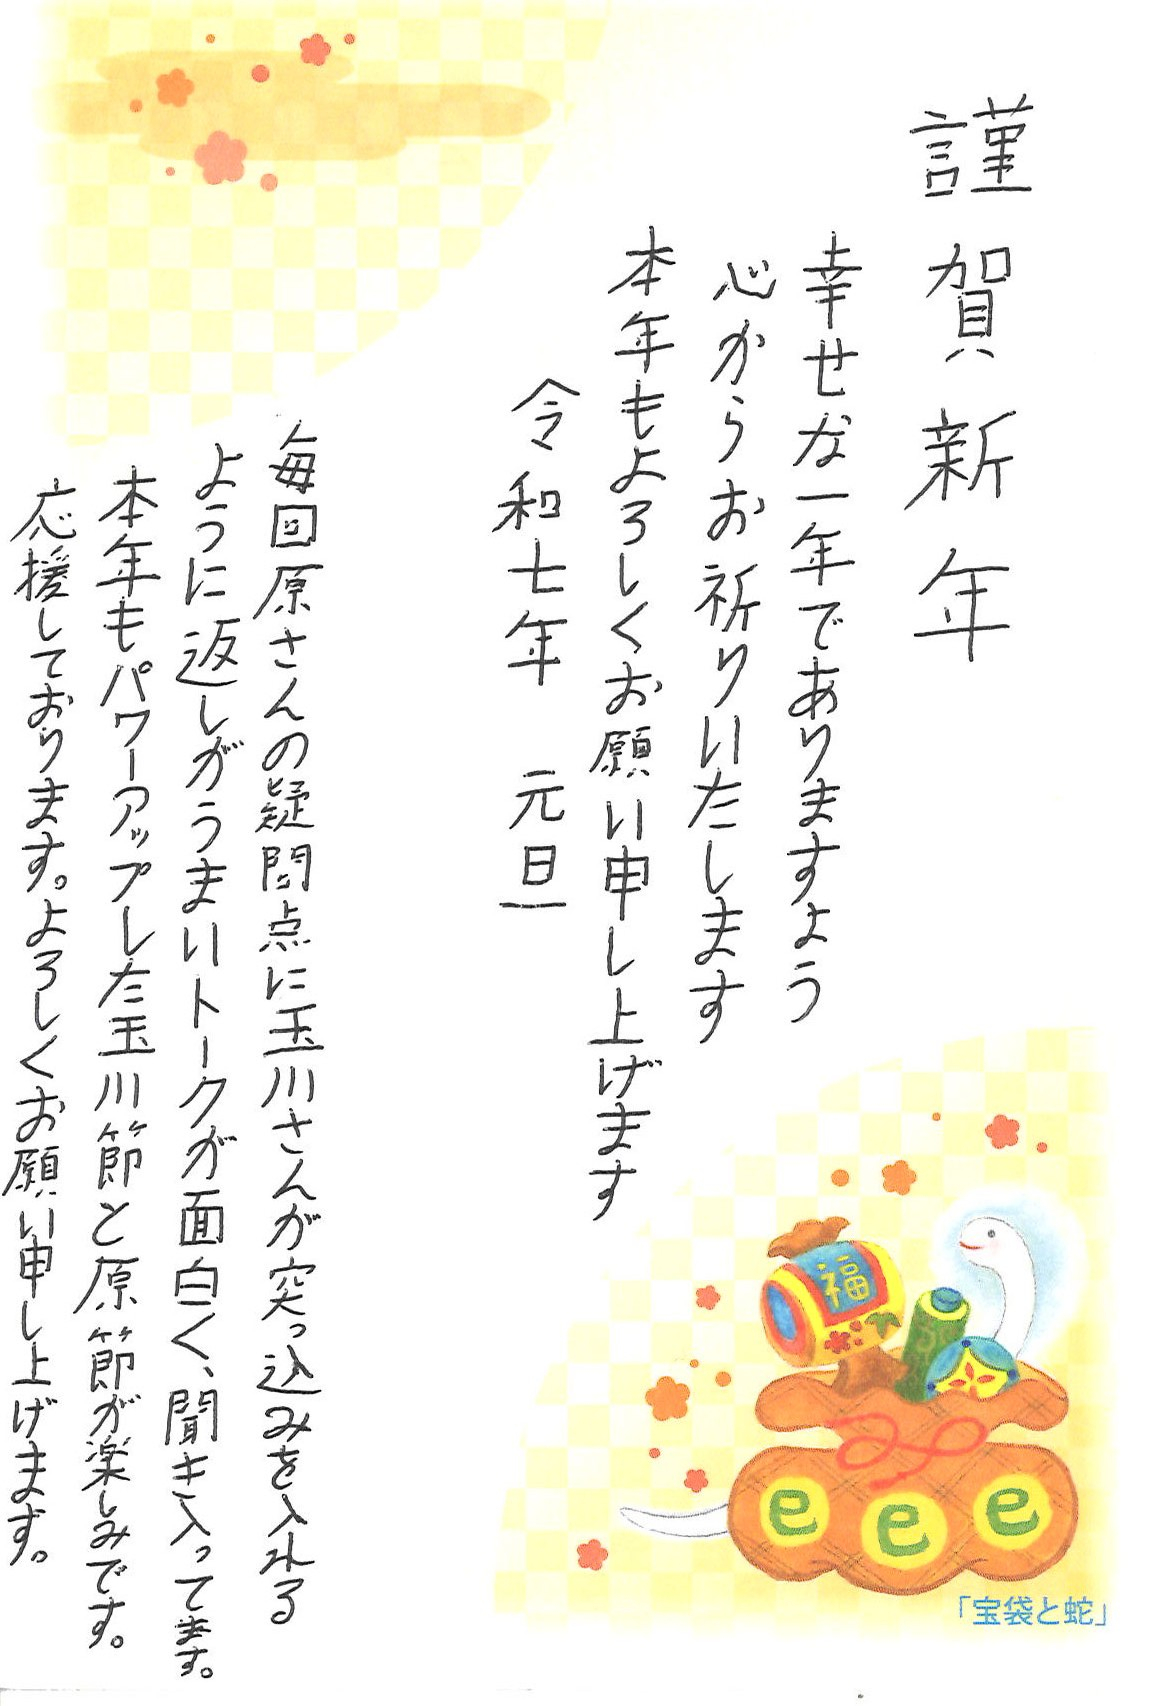 謹賀新年
幸せな一年でありますよう
心からお祈りいたします
本年もよろしくお願い申し上げます
令和七年 元旦
毎回原さんの疑問点に玉川さんが突っ込みを入れる
ように返しがうまいトークが面白く、聞き入ってます。
本年もパワーアップした玉川節と原節が楽しみです。
応援しております。よろしくお願い申し上げます。
福
e e e
「宝袋と蛇」